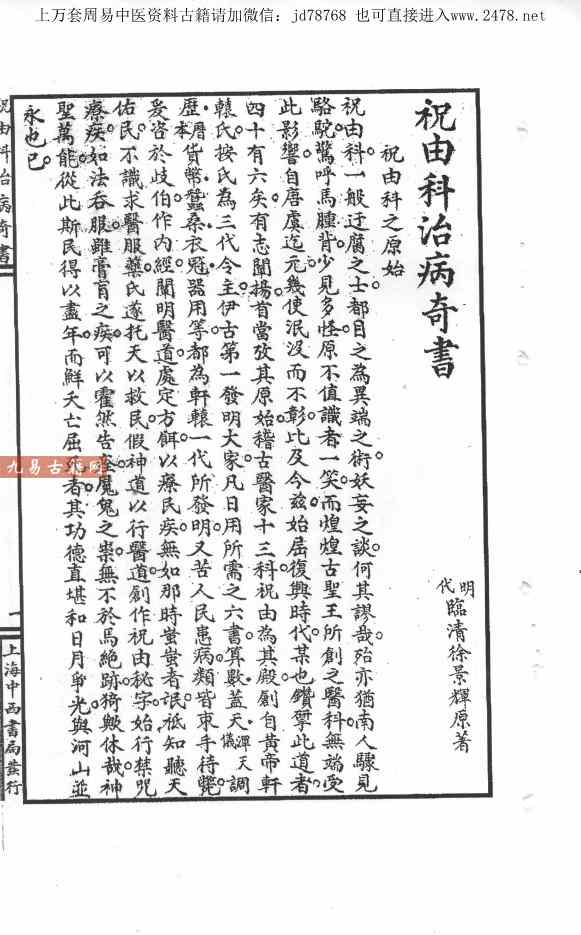 上万套周易中医资料古籍请加微信：jd78768 也可直接进入www.2478.net
祝由科治病奇書
明代 臨清徐景輝原著
祝由科之原始
祝由科。一般迂腐之士。都目之為異端之術。妖妄之談。何其謬哉。殆亦猶南人驟見
駱駝驚呼馬腫背。少見多怪。原不值識者一笑。而煌煌古聖王所創之醫科。無端受
此影響。自唐虞迄元。幾使泯沒而不彰。比及今玆。始屆復興時代。某也鑽孥此道者
四十有六矣。有志闡揚。首當放其原始。稽古醫家十三科。祝由為其殿。創自黃帝軒
轅氏。按氏為三代令主。伊古第一發明大家。凡日用所需之六書。算數。蓋天儀。渾天調
歷。本屠貨幣。蠶桑衣冠。器用等。都為軒轅一代所發明。又苦人民患病。類皆束手待斃。
爰咨於歧伯。作內經。闡明醫道。處定方餌。以療民疾。無如那時蚩蚩者氓。祗知聽天
佑民。不識求醫服藥。氏遂托天以救民。假神道以行醫道。創作祝由秘字。始行禁咒
療疾。如法吞服。雖膏肓之疾。可以霍然告痊。魔鬼之祟。無不於焉絕跡。猗歟休哉。神
聖萬能。從此斯民得以盡年而鮮夭亡屈 者。其功德直堪和日月爭光。與河山並
永也已。
祝由科治病奇書
一
上海中西書局發行
九易古籍网